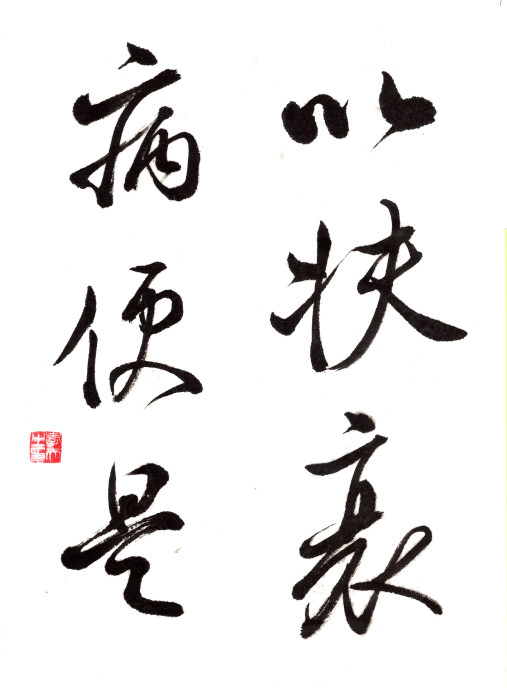 以扶衰
病便是